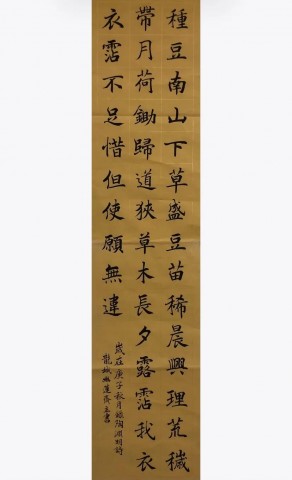 種豆南山下草盛豆苗稀晨興理荒穢
帶月荷鋤歸道狹草木長夕露霑我衣
衣霑不足惜但使願無違
歲在庚子秋月錄陶淵明詩
龍城書